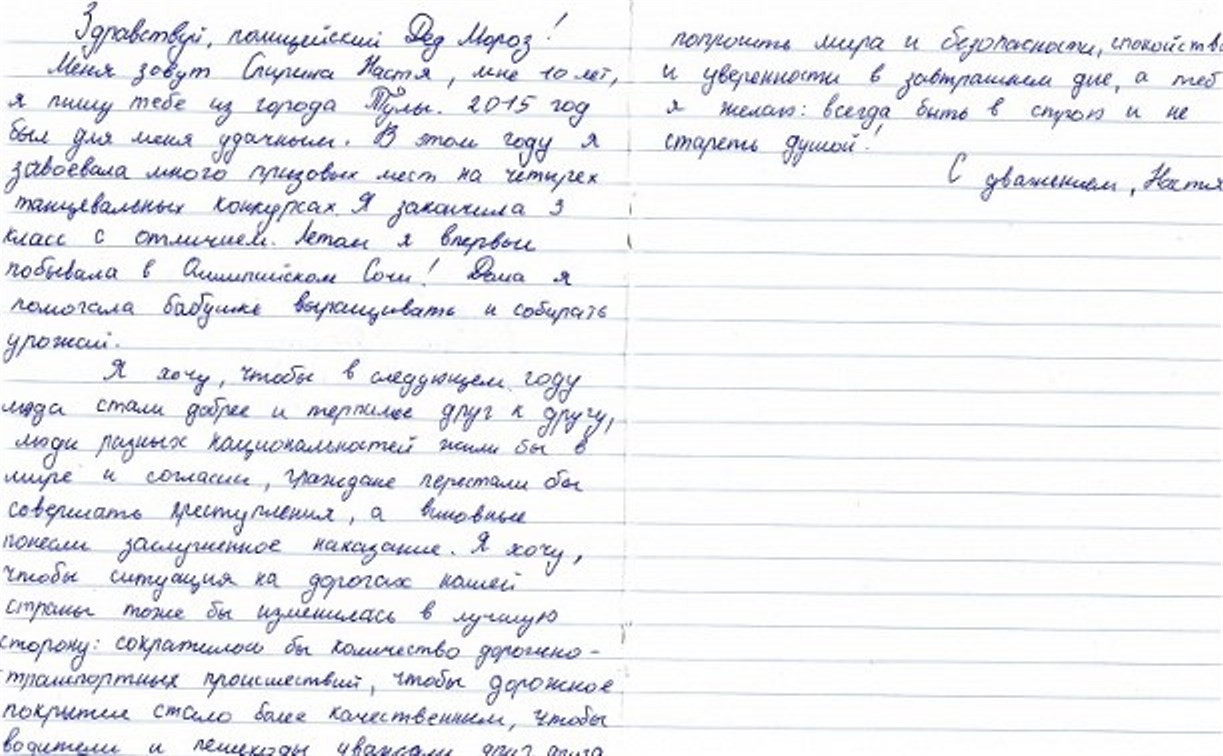 Здравствуй, полицейский Дед Мороз!
Меня зовут Спирина Настя, мне 10 лет,
я пишу тебе из города Тулы. 2015 год
был для меня удачным. В этом году я
завоевала много призовых мест на четырех
танцевальных конкурсах. Я закончила 3
класс с отличием. Летом я впервые
побывала в Олимпийском Сочи! Дома я
помогала бабушке выращивать и собирать
урожай.
Я хочу, чтобы в следующем году
люди стали добрее и терпимее друг к другу,
люди разных национальностей жили бы в
мире и согласии, граждане перестали бы
совершать преступления, а виновные
понесли заслуженное наказание. Я хочу,
чтобы ситуация на дорогах нашей
страны тоже бы изменилась в лучшую
сторону: сократилось бы количество дорожно-
транспортных происшествий, чтобы дорожное
покрытие стало более качественным, чтобы
водители и пешеходы уважали друг друга
попросить мира и безопасности, спокойств
и уверенности в завтрашнем дне, а теб
я желаю: всегда быть в строю и не
стареть душой!
С уважением, Настя